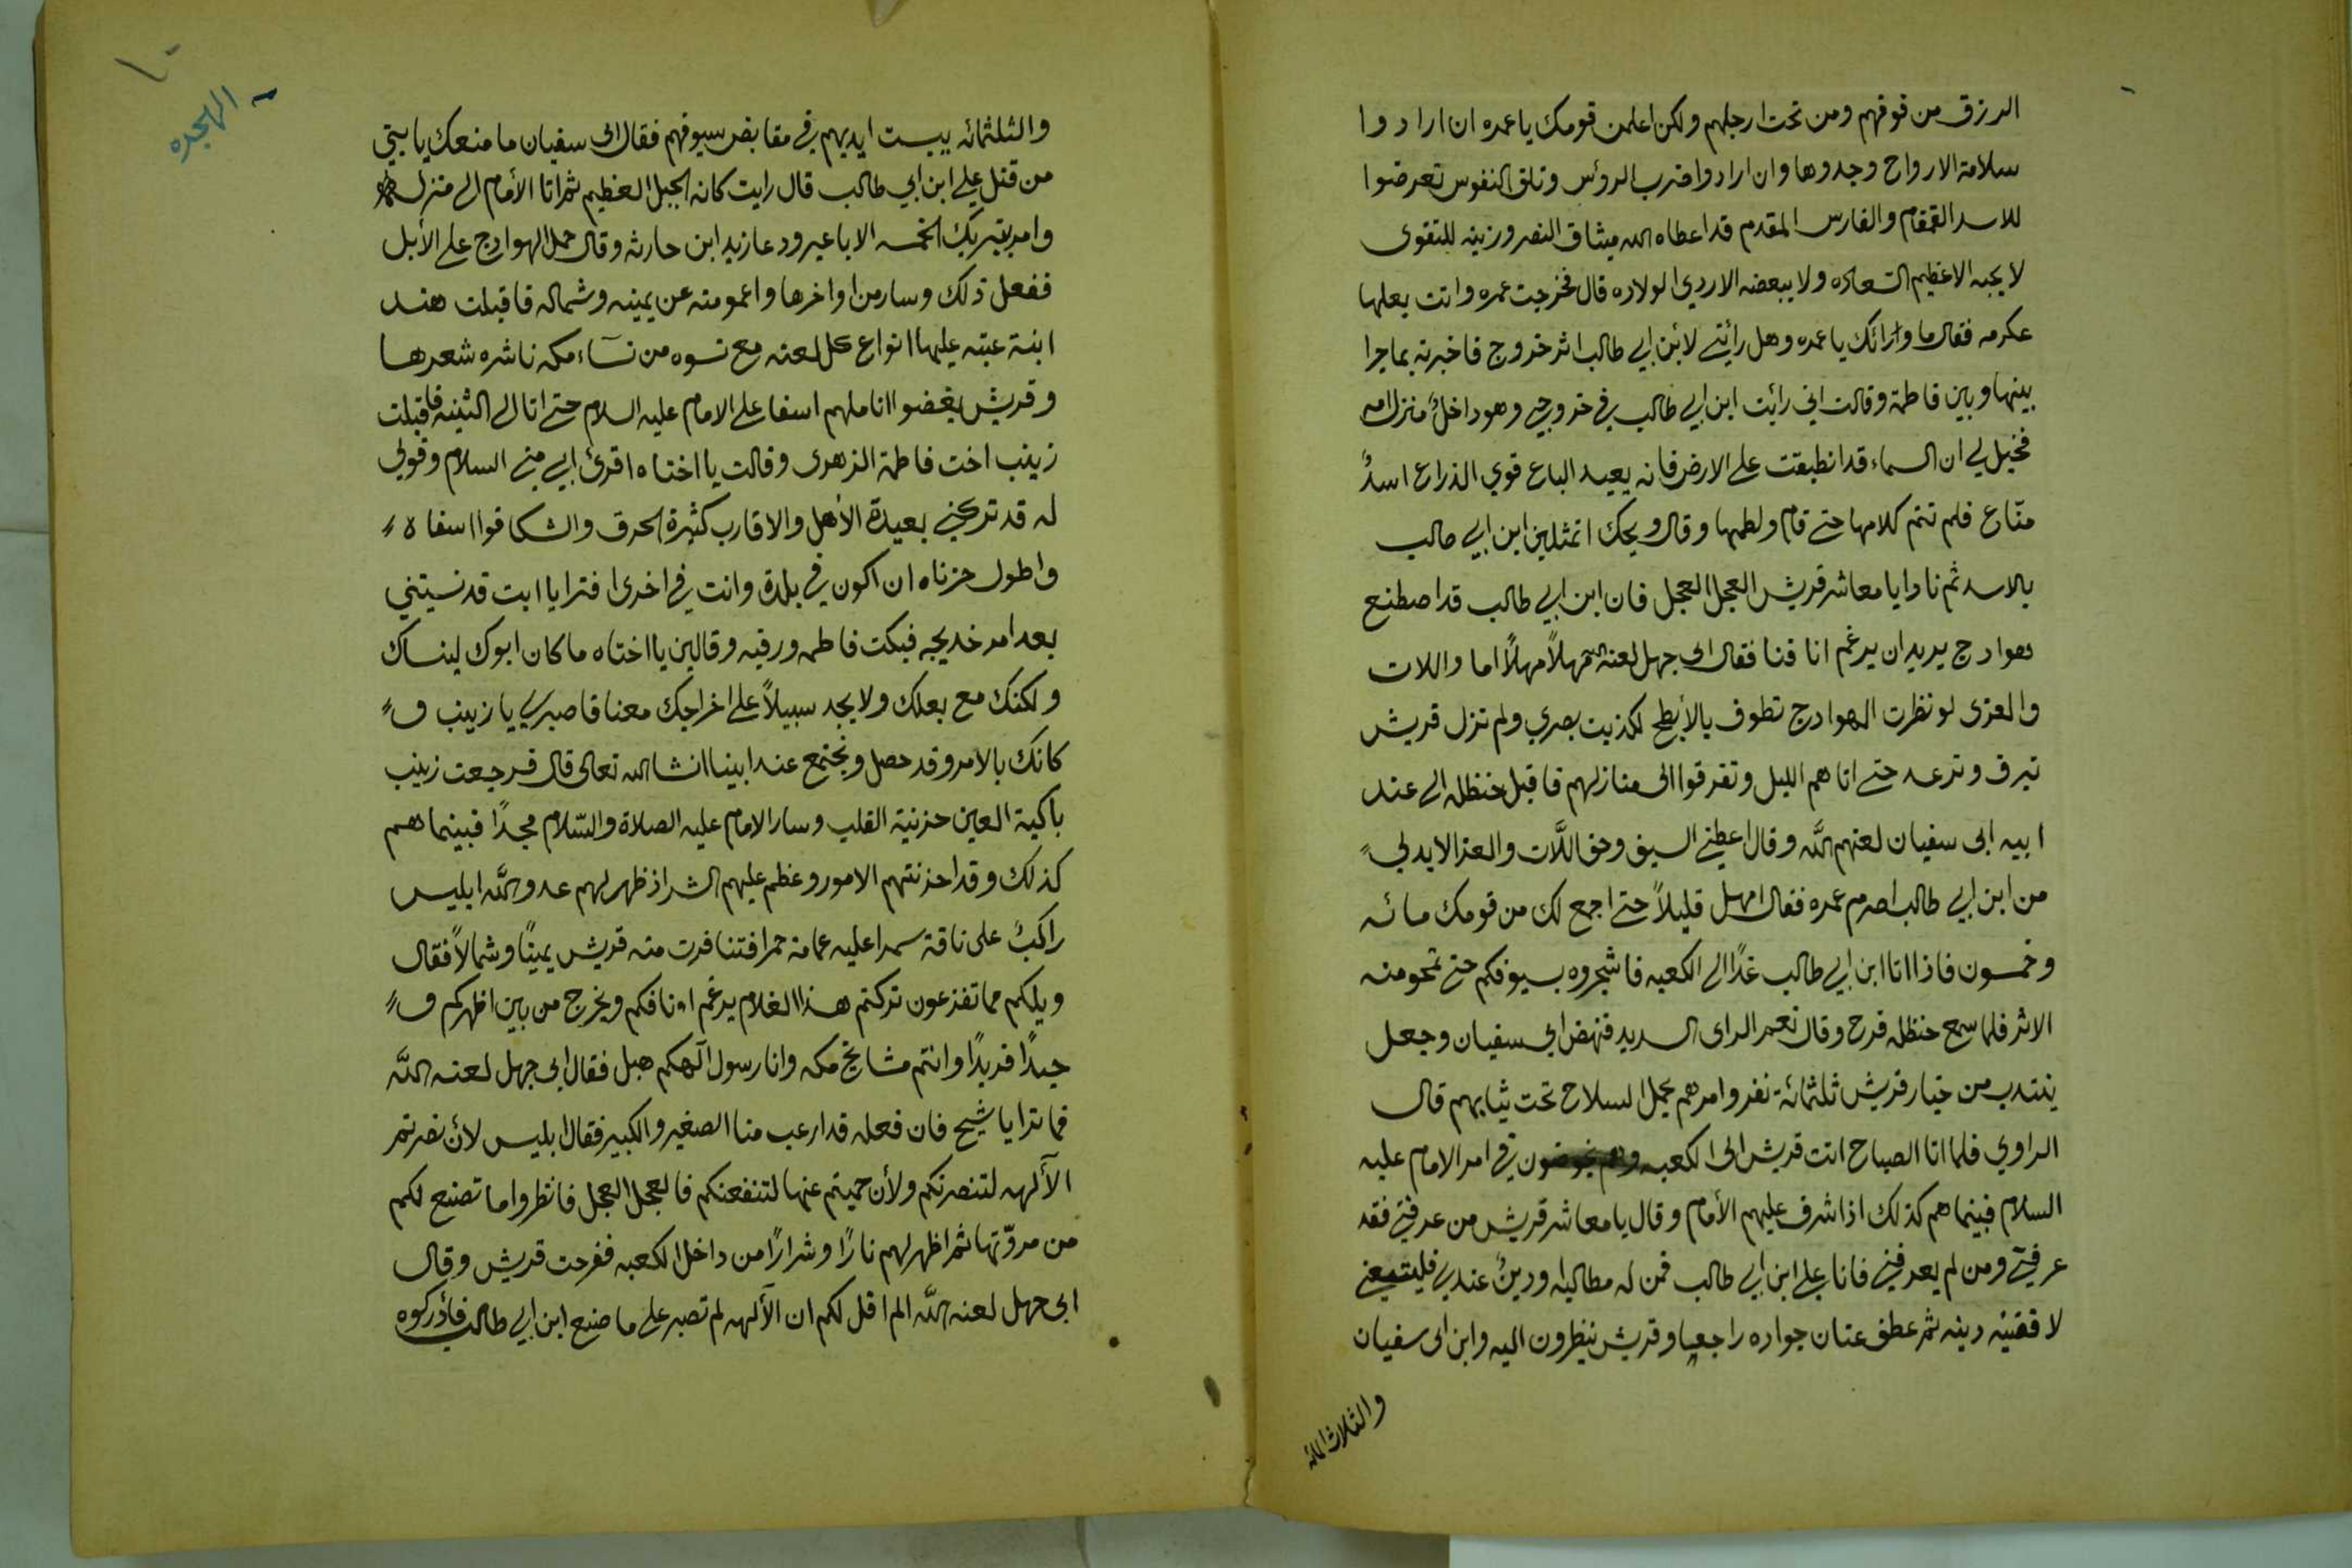 الرزق من فوقهم ومن تحت ارجلهم ولكن اعلمن قومك يا عمره ان ارادوا
سلامة الارواح وجدوها وان ارادوا ضرب الرؤس وتلق النفوس تعرضوا
للاسد القمقام والفارس المقدم قد اعطاه الله ميثاق النصر وزينه للتقوى
لا يحبه الا عظيم السعاده ولا يبغضه الا ردي الولاده قال فخرجت عمره واتت بعلها
عكرمه فقال ما ورائك يا عمره وهل رأيتي لابن ابي طالب اثر خروج فاخبرته بما جرا
بينها وبين فاطمة وقالت اني رأيت ابن ابي طالب في خروجي وهو داخل منزل امه
فخيل لي ان السماء قد انطبقت على الارض فانه بعيد الباع قوي الذراع اسدٌ
منّاع فلم تتم كلامها حتى قام ولطمها وقال ويحك اتمثلين ابن ابي طالب
بالاسد ثم نادا يا معاشر قريش العجل العجل فان ابن ابي طالب قد اصطنع
هوادج يريد ان يرغم انافنا فقال ابى جهل لعنه الله مهلاً مهلاً اما واللات
والعزى لو نظرت الهوادج تطوف بالأبطح لكذبت بصري ولم تزل قريش
تبرق وترعد حتى اتاهم الليل وتفرقوا الى منازلهم فاقبل حنظله الى عند
ابيه ابى سفيان لعنهم الله وقال اعطني السيف وحق اللّات والعزا لا بد لي
من ابن ابي طالب اصرم عمره فقال امهل قليلاً حتى اجمع لك من قومك مائه
وخمسون فاذا اتا ابن ابي طالب غدًا الى الكعبه فاشجروه بسيوفكم حتى تمحو منه
الاثر فلما سمع حنظله فرح وقال نعم الراى السديد فنهض ابي سفيان وجعل
ينتدب من خيار قريش ثلثمائة نفر وامرهم بحمل السلاح تحت ثيابهم قال
الراوي فلما اتا الصباح اتت قريش الى الكعبه وهم يخوضون في امر الامام عليه
السلام فبينما هم كذلك اذ اشرف عليهم الأمام وقال يا معاشر قريش من عرفني فقد
عرفني ومن لم يعرفني فانا علي ابن ابي طالب فمن له مطالبه ودينٌ عندي فليتبعني
لاقضينه دينه ثم عطف عنان جواده راجعا وقريش ينظرون اليه وابن ابى سفيان
والثلاثمائه
الهجره
والثلثمائه يبست ايديهم في مقابض سيوفهم فقال ابى سفيان ما منعك يا بني
من قتل علي ابن ابي طالب قال رايت كانه الجبل العظيم ثم اتا الأمام الى منزله
وامر بتبريك الخمسه الاباعير ودعا زيد ابن حارثه وقال حمل الهوادج على الأبل
ففعل ذلك وسار من اواخرها واعمومته عن يمينه وشماله فاقبلت هند
ابنة عتبه عليها انواع كل لعنه مع نسوه من نسآء مكه ناشره شعرها
وقريش يغضوا اناملهم اسفا على الامام عليه السلام حتى اتا الى الثنيه فاقبلت
زينب اخت فاطمة الزهرى وقالت يا اختاه اقرئ ابي مني السلام وقولي
له قد تركتني بعيدة الأهل والاقارب كثيرة الحرق والشكا فوا اسفاه
واطول حزناه ان اكون في بلدة وانت في اخرى افترا يا ابت قد نسيتني
بعد امر خديجه فبكت فاطمه ورقيه وقالين يا اختاه ما كان ابوك لينساك
ولكنك مع بعلك ولا يجد سبيلاً على اخراجك معنا فاصبري يا زينب ف
كانك بالامر وقد حصل ونجتمع عند ابينا انشا الله تعالى قال فرجعت زينب
باكية العين حزينة القلب وسار الامام عليه الصلاة والسّلام مجدًا فبينما هم
كذلك وقد احزنتهم الامور وعظم عليهم الشر اذ ظهر لهم عدو الله ابليس
راكبٌ على ناقة سمرا عليه عمامة حمرا فتنافرت منه قريش يمينًا وشمالاً فقال
ويلكم مما تفزعون تركتم هذا الغلام يرغم اونافكم ويخرج من بين اظهركم ف
حيدًا فريدًا وانتم مشايخ مكه وانا رسول آلهكم هبل فقال ابى جهل لعنه الله
فما ترا يا شيخ فان فعله قد ارعب منا الصغير والكبير فقال ابليس لأن نصرتم
الآلهه لتنصرنكم ولأن حميتم عنها لتنفعنكم فالعجل العجل فانظروا ما تصنع لكم
من مروّتها ثم اظهر لهم نارًا وشرارًا من داخل الكعبه ففرحت قريش وقال
ابى جهل لعنه الله الم اقل لكم ان الآلهه لم تصبر على ما صنع ابن ابي طالب فأدركوه